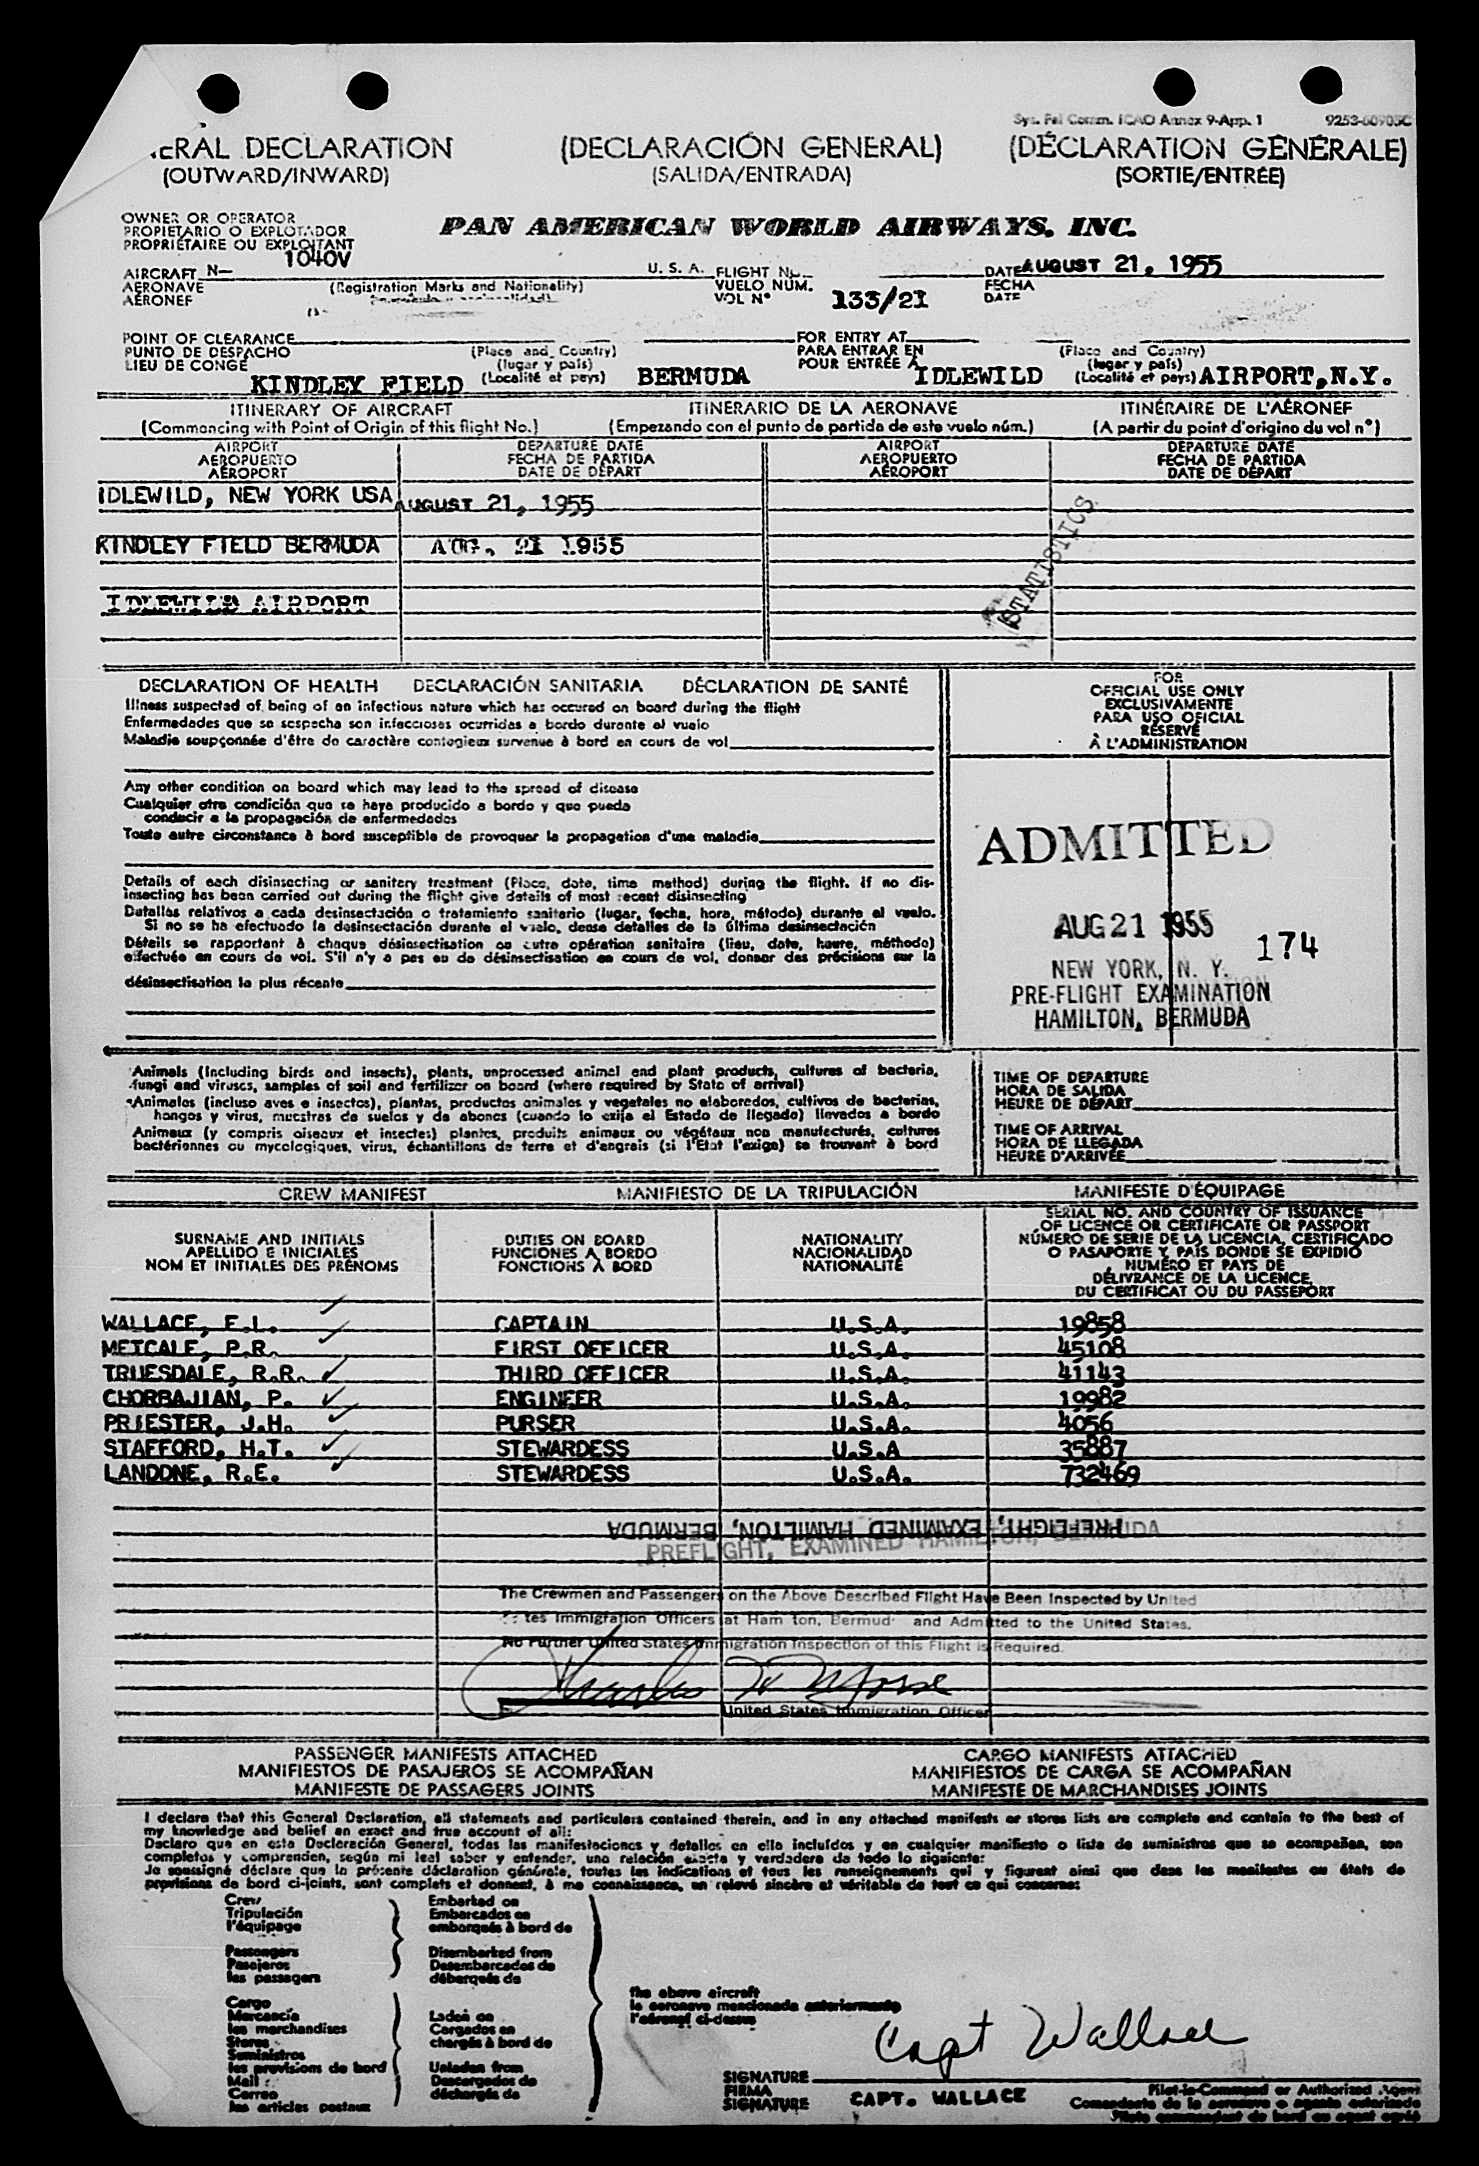 Annex 9-App. 1
ERAL DECLARATION (DECLARACIÓN GENERAL) (DÉCLARATION GÉNÉRALE)
(OUTWARD/INWARD) (SALIDA/ENTRADA) (SORTIE/ENTRÉE)
OWNER OR OPERATOR
PROPIETARIO O EXPLOTADOR
PROPRIÉTAIRE OU EXPLOITANT
PAN AMERICAN WORLD AIRWAYS, INC.
AIRCRAFT N- 1040V U. S. A. FLIGHT DATE AUGUST 21, 1955
AERONAVE (Registration Marks and Nationality) VUELO NUM. FECHA
AÉRONEF VOL Nº 133/21 DATE
POINT OF CLEARANCE FOR ENTRY AT
PUNTO DE DESPACHO (Place and Country) PARA ENTRAR EN (Place and Country)
LIEU DE CONGÉ (lugar y país) POUR ENTRÉE À (lugar y país)
KINDLEY FIELD (Localité et pays) BERMUDA IDLEWILD (Localité et pays) AIRPORT, N.Y.
ITINERARY OF AIRCRAFT ITINERARIO DE LA AERONAVE ITINÉRAIRE DE L'AÉRONEF
(Commencing with Point of Origin of this flight No.) (Empezando con el punto de partida de este vuelo núm.) (A partir du point d'origine du vol nº)
AIRPORT DEPARTURE DATE AIRPORT DEPARTURE DATE
AEROPUERTO FECHA DE PARTIDA AEROPUERTO FECHA DE PARTIDA
AÉROPORT DATE DE DÉPART AÉROPORT DATE DE DÉPART
IDLEWILD, NEW YORK USA AUGUST 21, 1955
KINDLEY FIELD BERMUDA AUG. 21 1955
STATISTICS
IDLEWILD AIRPORT
DECLARATION OF HEALTH DECLARACIÓN SANITARIA DÉCLARATION DE SANTÉ
Illness suspected of being of an infectious nature which has occured on board during the flight
Enfermedades que se sospecha son infecciosas ocurridas a bordo durante el vuelo
Maladie soupçonnée d'être de caractère contagieux survenue à bord en cours de vol
Any other condition on board which may lead to the spread of disease
Cualquier otra condición que se haya producido a bordo y que pueda
conducir a la propagación de enfermedades
Toute autre circonstance à bord susceptible de provoquer la propagation d'une maladie
Details of each disinsecting or sanitary treatment (Place, date, time method) during the flight. If no dis-
insecting has been carried out during the flight give details of most recent disinsecting
Detalles relativos a cada desinsectación o tratamiento sanitario (lugar, fecha, hora, método) durante el vuelo.
Si no se ha efectuado la desinsectación durante el vuelo, dense detalles de la última desinsectación
Détails se rapportant à chaque désinsectisation ou autre opération sanitaire (lieu, date, heure, méthode)
effectuée en cours de vol. S'il n'y a pas eu de désinsectisation en cours de vol, donner des précisions sur la
désinsectisation la plus récente
FOR
OFFICIAL USE ONLY
EXCLUSIVAMENTE
PARA USO OFICIAL
RÉSERVÉ
À L'ADMINISTRATION
ADMITTED
AUG 21 1955
174
NEW YORK, N. Y.
PRE-FLIGHT EXAMINATION
HAMILTON, BERMUDA
Animals (Including birds and insects), plants, unprocessed animal and plant products, cultures of bacteria,
fungi and viruses, samples of soil and fertilizer on board (where required by State of arrival)
Animales (incluso aves e insectos), plantas, productos animales y vegetales no elaborados, cultivos de bacterias,
hongos y virus, muestras de suelos y de abonos (cuando lo exija el Estado de llegada) llevados a bordo
Animaux (y compris oiseaux et insectes) plantes, produits animaux ou végétaux non manufacturés, cultures
bactériennes ou mycologiques, virus, échantillons de terre et d'engrais (si l'Etat l'exige) se trouvant à bord
TIME OF DEPARTURE
HORA DE SALIDA
HEURE DE DÉPART
TIME OF ARRIVAL
HORA DE LLEGADA
HEURE D'ARRIVÉE
CREW MANIFEST MANIFIESTO DE LA TRIPULACIÓN MANIFESTE D'ÉQUIPAGE
SURNAME AND INITIALS
APELLIDO E INICIALES
NOM ET INITIALES DES PRÉNOMS
DUTIES ON BOARD
FUNCIONES A BORDO
FONCTIONS À BORD
NATIONALITY
NACIONALIDAD
NATIONALITÉ
SERIAL NO. AND COUNTRY OF ISSUANCE
OF LICENCE OR CERTIFICATE OR PASSPORT
NÚMERO DE SERIE DE LA LICENCIA, CERTIFICADO
O PASAPORTE Y PAÍS DONDE SE EXPIDIÓ
NUMÉRO ET PAYS DE
DÉLIVRANCE DE LA LICENCE,
DU CERTIFICAT OU DU PASSEPORT
WALLACE, E.L. CAPTAIN U.S.A. 19858
METCALF, P.R. FIRST OFFICER U.S.A. 45108
TRUESDALE, R.R. THIRD OFFICER U.S.A. 41143
CHORBAJIAN, P. ENGINEER U.S.A. 19982
PRIESTER, J.H. PURSER U.S.A. 4056
STAFFORD, H.T. STEWARDESS U.S.A 35887
LANDONE, R.E. STEWARDESS U.S.A. 732469
PREFLIGHT, EXAMINED HAMILTON, BERMUDA
PREFLIGHT, EXAMINED HAMILTON, BERMUDA
The Crewmen and Passengers on the Above Described Flight Have Been Inspected by United
tes Immigration Officers at Ham ton, Bermud and Admitted to the United States.
No Further United States Immigration Inspection of this Flight is Required.
Charles W Morse
United States Immigration Officer
PASSENGER MANIFESTS ATTACHED CARGO MANIFESTS ATTACHED
MANIFIESTOS DE PASAJEROS SE ACOMPAÑAN MANIFIESTOS DE CARGA SE ACOMPAÑAN
MANIFESTE DE PASSAGERS JOINTS MANIFESTE DE MARCHANDISES JOINTS
I declare that this General Declaration, all statements and particulars contained therein, and in any attached manifests or stores lists are complete and contain to the best of
my knowledge and belief an exact and true account of all:
Declaro que en esta Declaración General, todas las manifestaciones y detalles en ella incluídos y en cualquier manifiesto o lista de suministros que se acompañan, son
completos y comprenden, según mi leal saber y entender, una relación exacta y verdadera de todo lo siguiente:
Je soussigné déclare que la présente déclaration générale, toutes les indications et tous les renseignements qui y figurent ainsi que dans les manifestes ou états de
provisions de bord ci-joints, sont complets et donnent, à ma connaissance, un relevé sincère et véritable de tout ce qui concerne:
Crew Embarked on
Tripulación Embarcados en
l'équipage embarqués à bord de
Passengers Disembarked from
Pasajeros Desembarcados de
les passagers débarqués de
the above aircraft
la aeronave mencionada anteriormente
l'aéronef ci-dessus
Cargo
Mercancía Laden on
les marchandises Cargados en
Stores chargés à bord de
Suministros
les provisions de bord Unladen from
Mail Descargados de
Correo déchargés de
les articles postaux
Capt Wallace
SIGNATURE
FIRMA CAPT. WALLACE
SIGNATURE
Pilot-in-Command or Authorized Agent
Comandante de la aeronave o agente autorizado